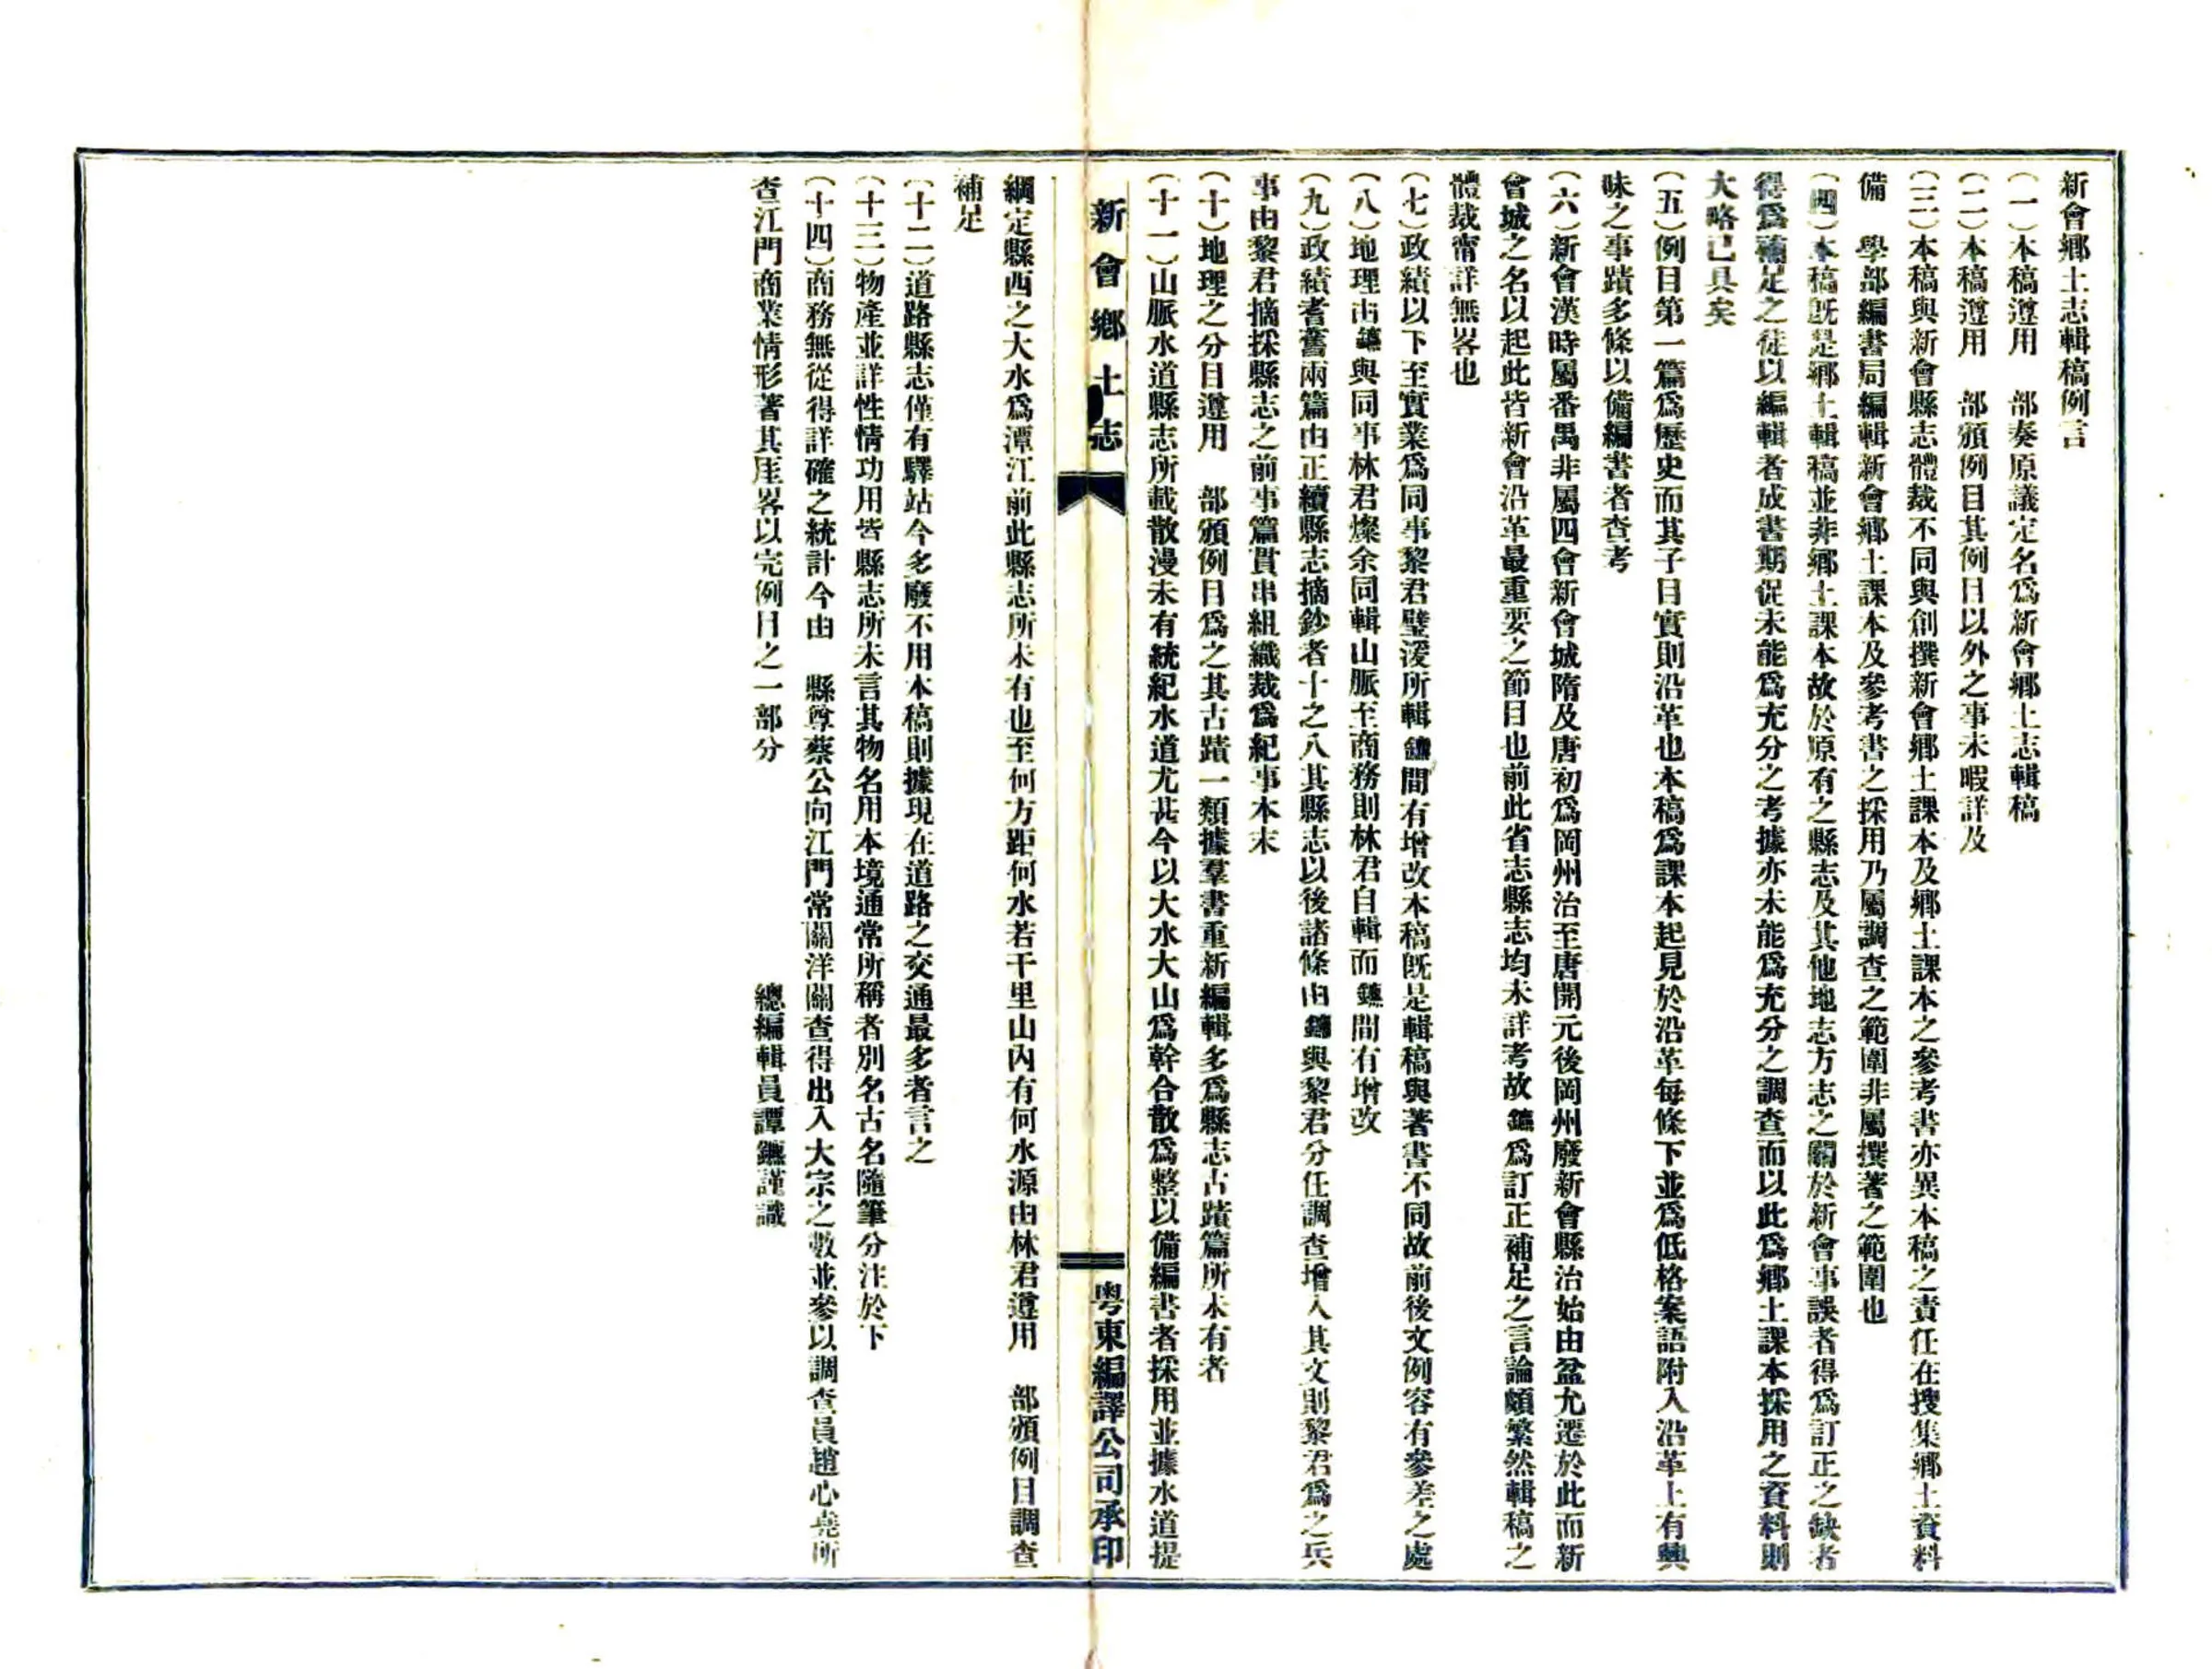 新會鄉土志輯稿例言
(一)本稿遵用　部奏原議定名爲新會鄉土志輯稿
(二)本稿遵用　部頒例目其例目以外之事未暇詳及
(三)本稿與新會縣志體裁不同與創撰新會鄉土課本及鄉土課本之參考書亦異本稿之責任在搜集鄉土資料
備　學部編書局編輯新會鄉土課本及參考書之採用乃屬調查之範圍非屬撰著之範圍也
(四)本稿旣是鄉土輯稿並非鄉土課本故於原有之縣志及其他地志方志之關於新會事誤者得爲訂正之缺者
得爲補足之徒以編輯者成書期促未能爲充分之考據亦未能爲充分之調查而以此爲鄉土課本採用之資料則
大略已具矣
(五)例目第一篇爲歷史而其子目實則沿革也本稿爲課本起見於沿革每條下並爲低格案語附入沿革上有興
味之事蹟多條以備編書者查考
(六)新會漢時屬番禺非屬四會新會城隋及唐初爲岡州治至唐開元後岡州廢新會縣治始由盆允遷於此而新
會城之名以起此皆新會沿革最重要之節目也前此省志縣志均未詳考故鑣爲訂正補足之言論頗繁然輯稿之
體裁甯詳無畧也
(七)政績以下至實業爲同事黎君璧湲所輯鑣間有增改本稿旣是輯稿與著書不同故前後文例容有參差之處
(八)地理由鑣與同事林君燦余同輯山脈至商務則林君自輯而鑣間有增改
(九)政績耆舊兩篇由正續縣志摘鈔者十之八其縣志以後諸條由鑣與黎君分任調查增入其文則黎君爲之兵
事由黎君摘採縣志之前事篇貫串組織裁爲紀事本末
(十)地理之分目遵用　部頒例目爲之其古蹟一類據羣書重新編輯多爲縣志古蹟篇所未有者
(十一)山脈水道縣志所載散漫未有統紀水道尤甚今以大水大山爲幹合散爲整以備編書者採用並據水道提
新會鄉土志
粵東編譯公司承印
綱定縣西之大水爲潭江前此縣志所未有也至何方距何水若干里山內有何水源由林君遵用　部頒例目調查
補足
(十二)道路縣志僅有驛站今多廢不用本稿則據現在道路之交通最多者言之
(十三)物產並詳性情功用皆縣志所未言其物名用本境通常所稱者別名古名隨筆分注於下
(十四)商務無從得詳確之統計今由　縣尊蔡公向江門常關洋關查得出入大宗之數並參以調查員趙心堯所
查江門商業情形著其厓畧以完例目之一部分
總編輯員譚鑣謹識